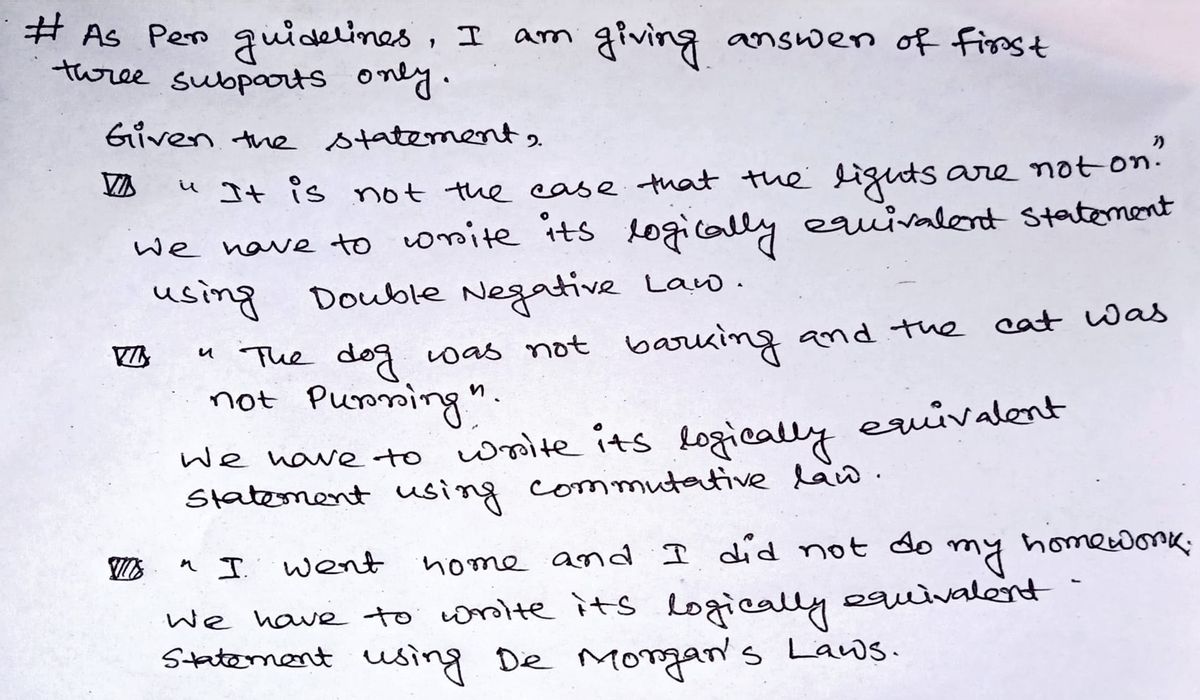 # As Per guidelines, I am giving answer of first
three subparts only.
Given the statement,
" It is not the case that the lights are not on."
We have to write its logically equivalent statement
using Double Negative Law.
" The dog was not barking and the cat was
not Purring".
We have to write its logically equivalent
statement using commutative law.
" I went home and I did not do my homework.
We have to write its logically equivalent
statement using De Morgan's Laws.